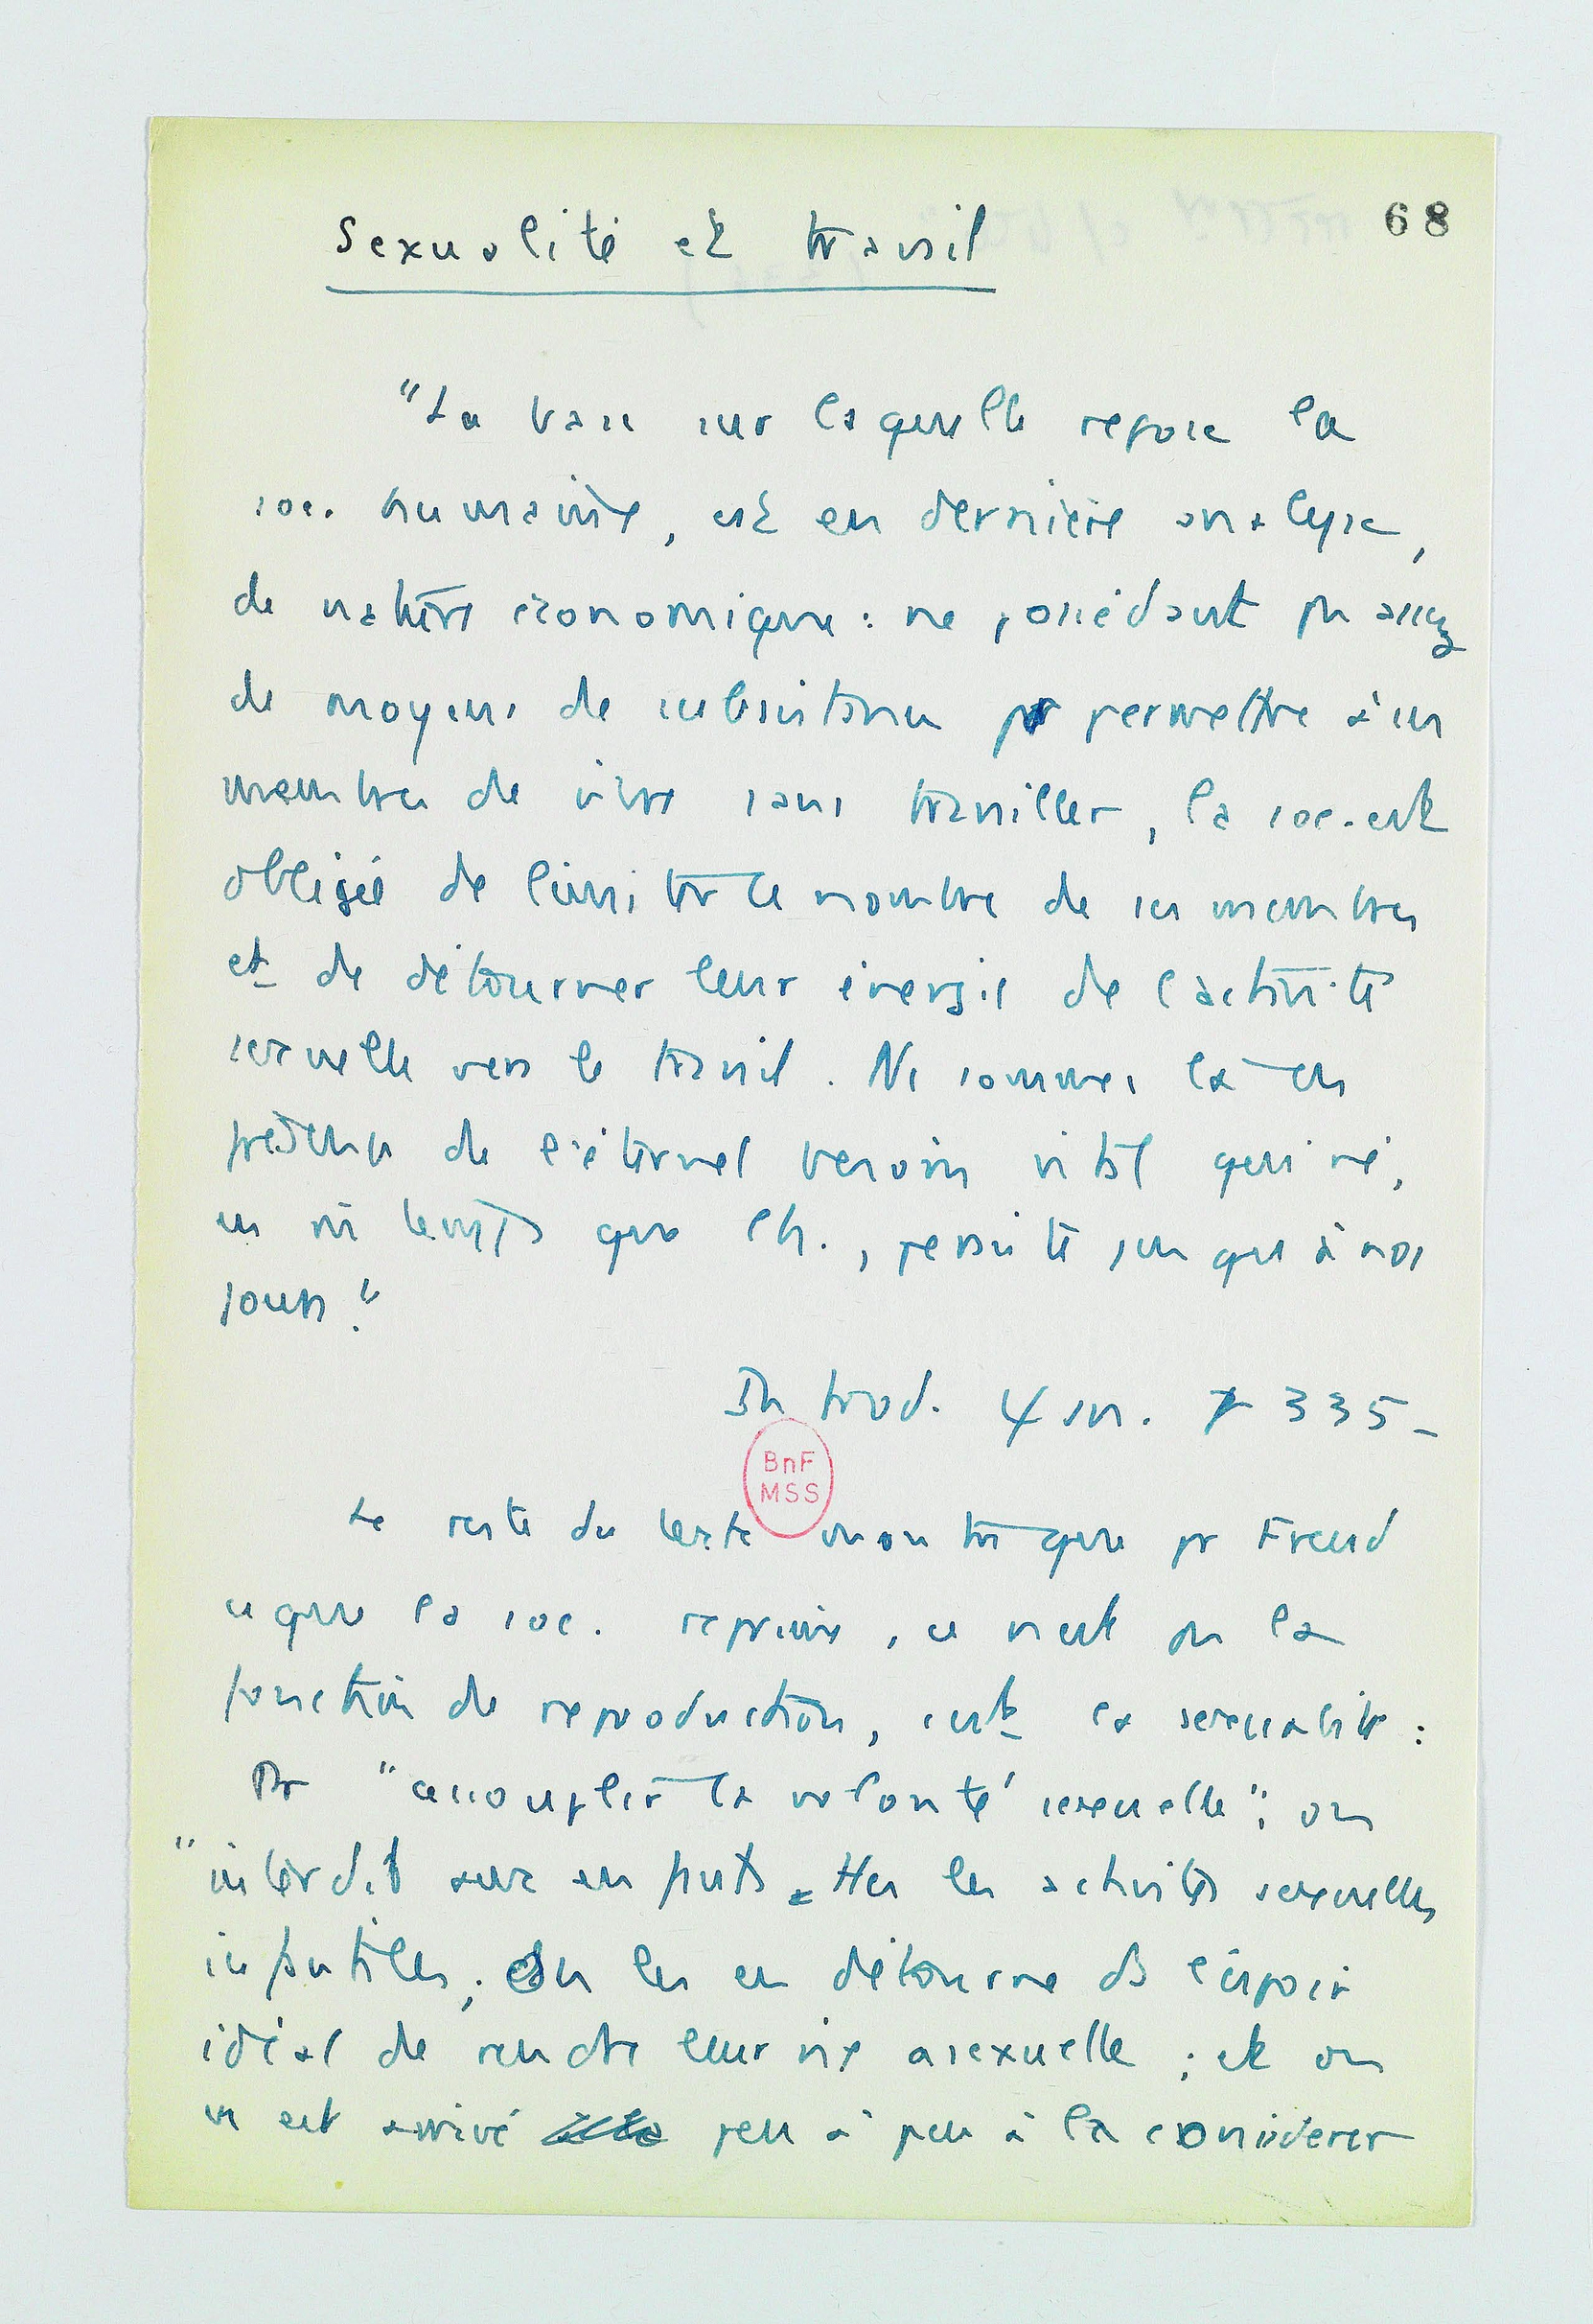 68
Sexualité et travail
"La base sur laquelle repose la
soc. humaine, est en dernière analyse,
de nature économique : ne possédant pas assez
de moyens de subsistance pr permettre à ses
membres de vivre sans travailler, la soc. est
obligée de limiter le nombre de ses membres
et de détourner leur énergie de l'activité
sexuelle vers le travail. Ns sommes là en
présence de l'éternel besoin vital qui né,
en mê temps que l'h., persiste jusqu'à nos
jours."
Introd. 4 335-
BnF
MSS
Le reste du texte montre que pr Freud
ce que la soc. reprime, ce n'est pas la
fonction de reproduction, c'est la sexualité :
Pr "accouplir la volonté sexuelle"; on
"interdit aux enfants ttes les activités sexuelles
infantiles; On les en détourne ds l'espoir
idéal de rendre leur vie asexuelle ; et on
en est arrivé peu à peu à la considérer